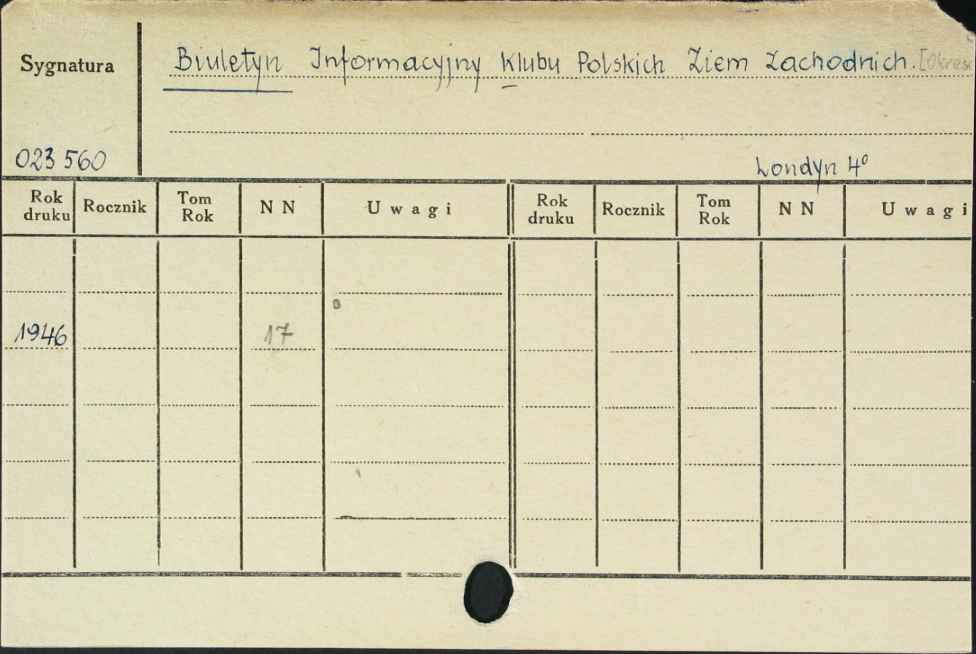 Sygnatura
Biuletyn Informacyjny Klubu Polskich Ziem Zachodnich.
023 560
Londyn 4°
Rok druku Rocznik Tom Rok N N Uwagi Rok druku Rocznik Tom Rok N N Uwagi
1946 17